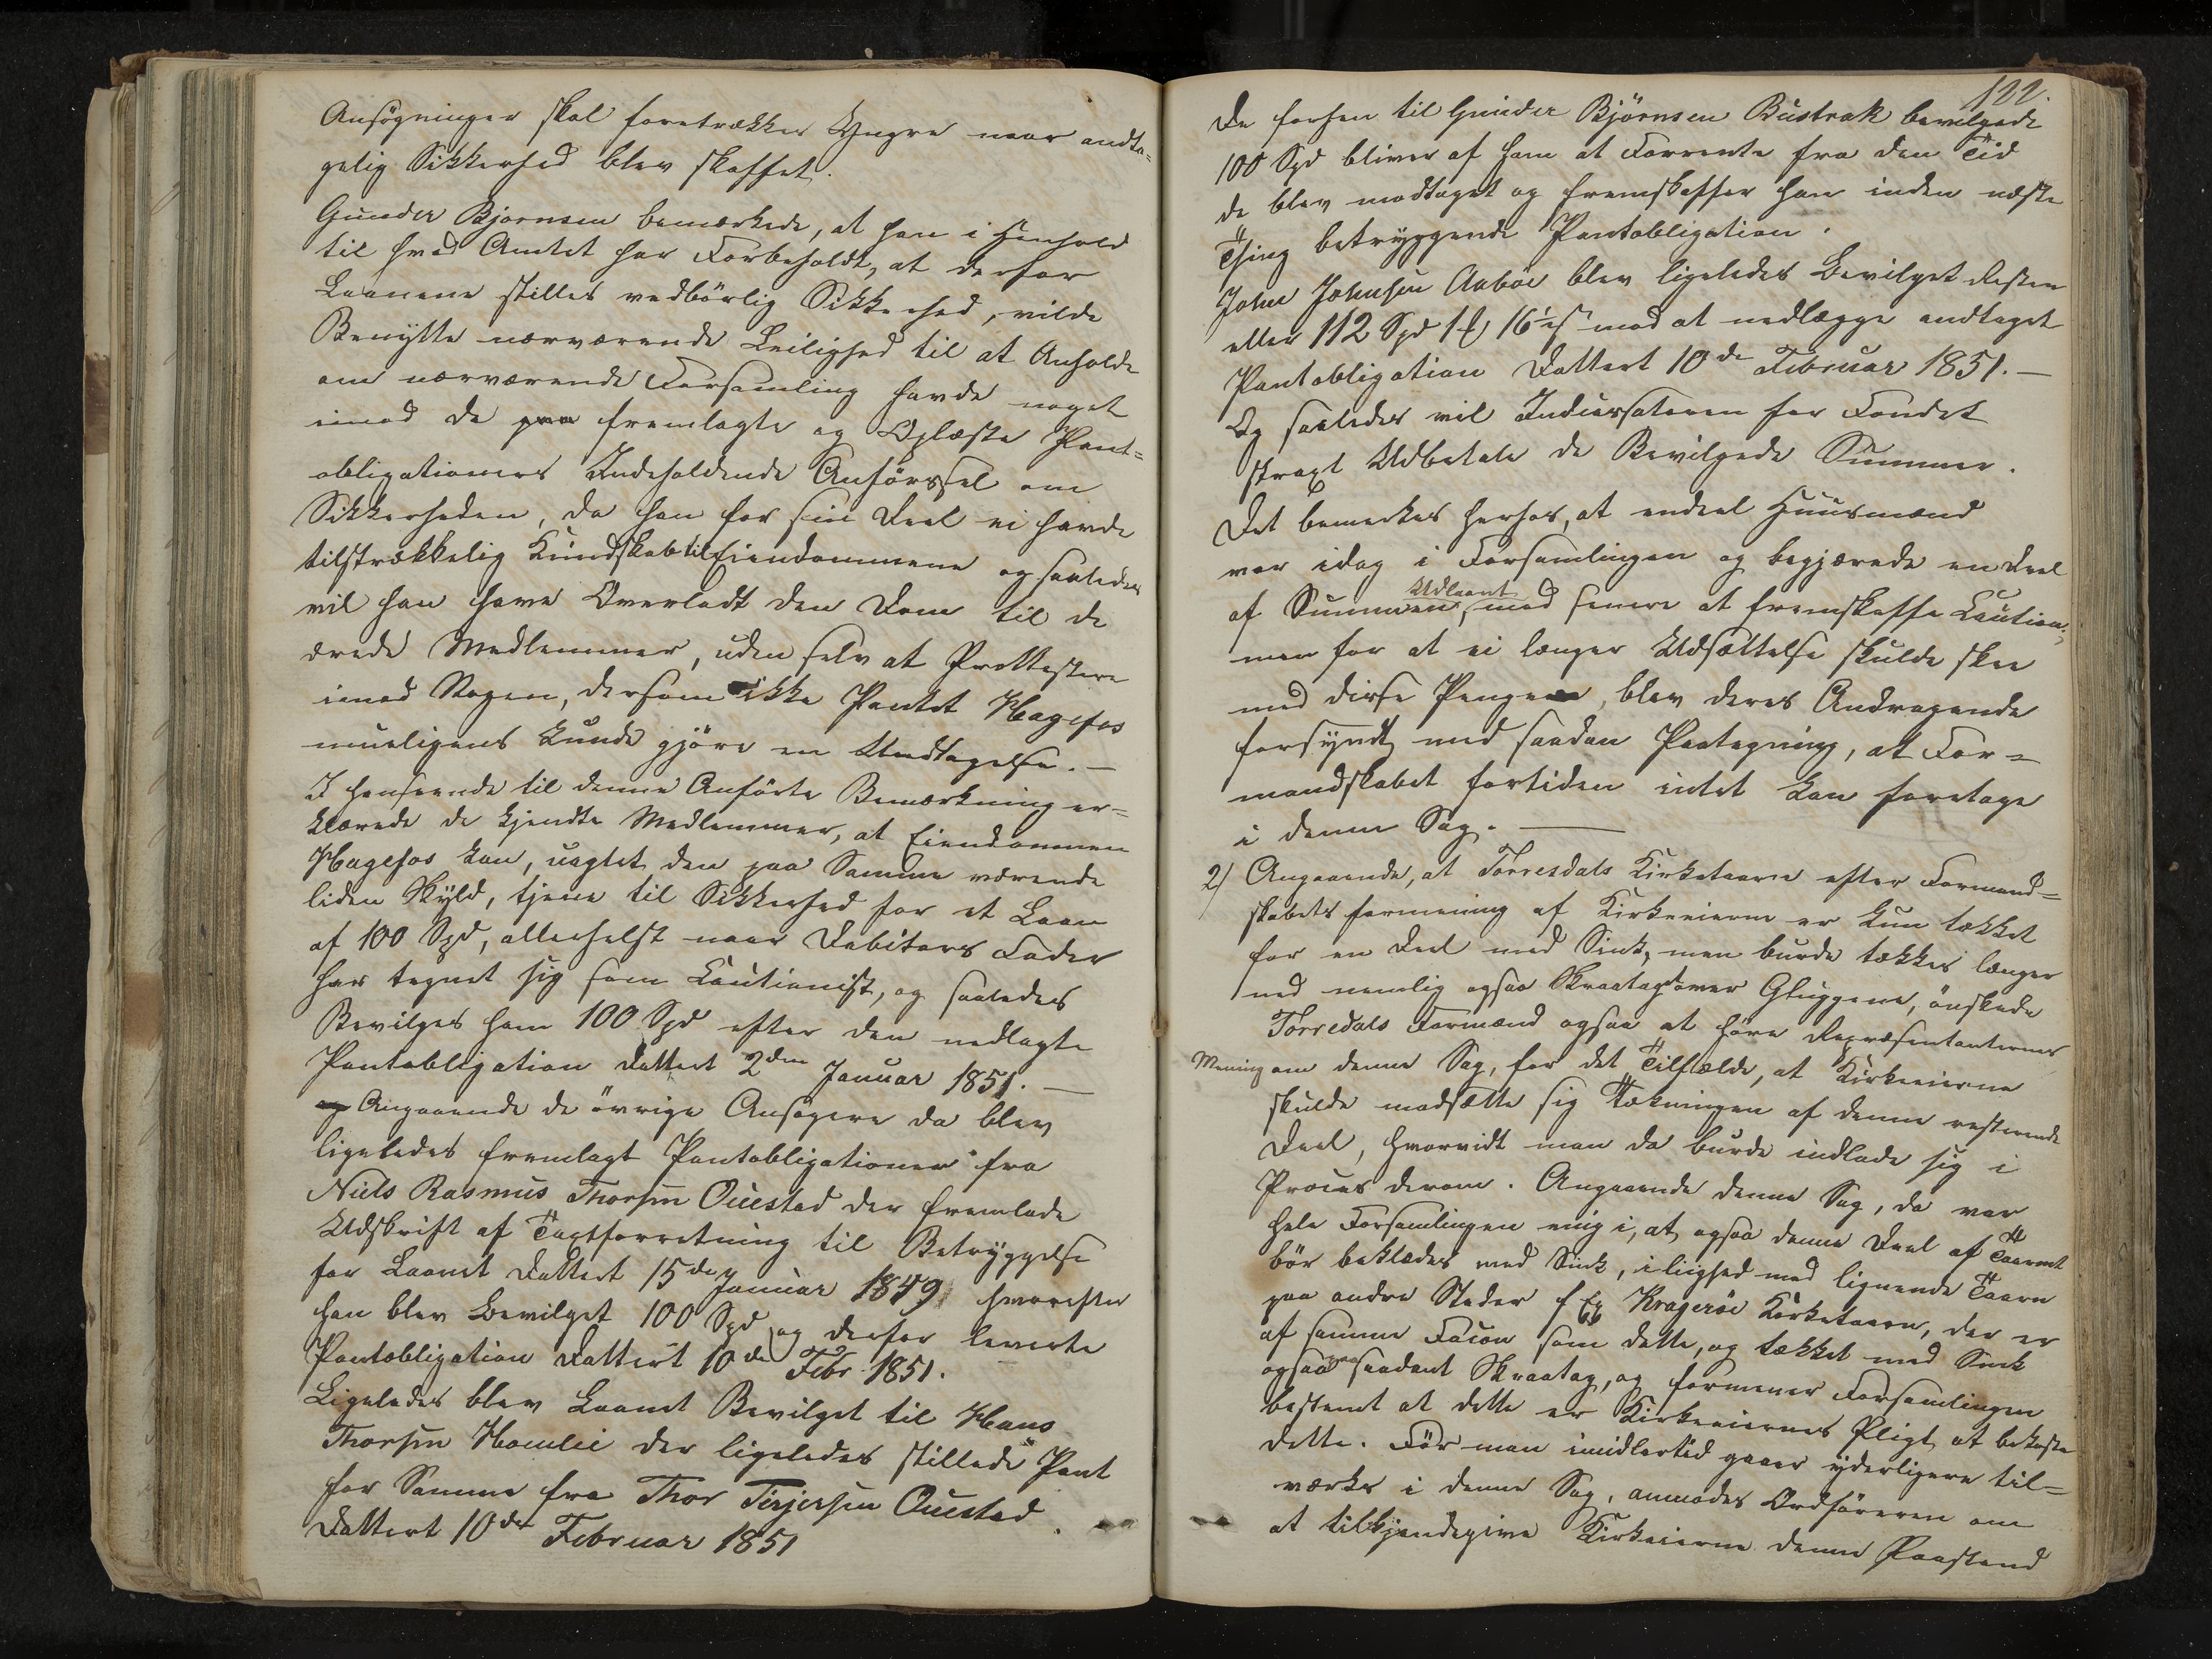 Ansøgninger skal foretrækkes Yngre naar andta=
gelig Sikkerhed blev skaffet.
Gunder Bjørnsen bemærkede, at han i Henhold
til hvad Amtet har Forbeholdt, at derfor
Laanene stilles vedbørlig Sikkerhed, vilde
Benytte nærværende Leilighed til at Anholde
om nærværende Forsamling havde noget
imod de fremlagte og Oplæste Pant=
obligationers Indeholdende Anførssel om
Sikkerheden, da han for sin Deel ei havde
tilstrækkelig Kundskab til Eiendommene og saaledes
vil han have Overladt den Dom til de
ærede Medlemmer, uden selv at Prottestere
imod Nogen, dersom ikke Pantet Hagefos
mueligens kunde gjøre en Undtagelse. —
I henseende til denne Anførte Bemærkning er=
klærede de kjendte Medlemmer, at Eiendommen
Hagefos kan, uagtet den paa Samme værende
liden Skyld, tjene til Sikkerhed for et Laan
af 100 Spd, allerhelst naar Debitors Fader
har tegnet sig som Cautionist, og saaledes
Bevilges ham 100 Spd efter den nedlagte
Pantobligation dattert 2den Januar 1851. —
Angaaende de øvrige Ansøgere da blev
ligeledes fremlagt Pantobligationer fra
Niels Rasmus Thorsen Ouestad der fremlade
Udskrift af Taxtforretning til Betryggelse
for Laanet dattert 15de Januar 1849 hvorefter
han blev Bevilget 100 Spd og derfor leverte
Pantobligation dattert 10de Febr: 1851.
Ligeledes blev Laanet Bevilget til Hans
Thorsen Homlei der ligeledes stillede Pant
for Samme fra Thor Terjersen Ouestad
dattert 10de Februar 1851
122.
De forhen til Gunder Bjørnsen Bustrak bevilgede
100 Spd bliver af ham at Forrente fra den Tid
de blev modtaget og fremskaffer han inden næste
Thing betryggende Pantobligation.
John Johnsen Aabøe blev ligeledes Bevilget Resten
eller 112 Spd 1 16½ s mod at nedlægge andtaget
Pantobligation Dattert 10de Februar 1851. —
Og saaledes vil Indcassatoren for Fondet
strax Udbetale de Bevilgede Summer.
Det bemærkes herhos, at endeel Huusmænd
var idag i Forsamlingen og begjærede en Deel
af Summen Udlaant, mod senere at fremskaffe Caution;
men for at ei længer Udsættelse skulde skee
med disse Penge, blev deres Andragende
forsyndt med saadan Paategning, at For=
mandskabet fortiden intet kan foretage
i denne Sag. —
2/ Angaaende, at Tørresdals Kirketaarn efter Formand=
skabets formening af Kirkeeierne er kun tækket
for en Deel med Sink, men burde tækkes længer
ned nemlig ogsaa Skraataget over Gluggene, ønskede
Tørredals Formænd ogsaa at høre Repræsentanternes
Mening om denne Sag, for det Tilfælde, at Kirkeeierne
skulde modsætte sig Tækningen af denne resterende
Deel, hvorvidt man da burde indlade sig i
Proces derom. Angaaende denne Sag, da var
hele Forsamlingen enig i, at ogsaa denne Deel af Taarnet
bør beklædes med Sink, i liighed med lignende Taarn
paa andre Steder f Ex Kragerøe Kirketaarn, der er
af samme Facon som dette, og tækket med Sink
ogsaa paa saadant Skraatag, og formener Forsamlingen
bestemt at dette er Kirkeeiernes Pligt, at bekoste
dette. Før man imidlertid gaaer yderligere til=
værks i denne Sag, anmodes Ordføreren om
at tilkjendegive Kirkeierne denne Paastand